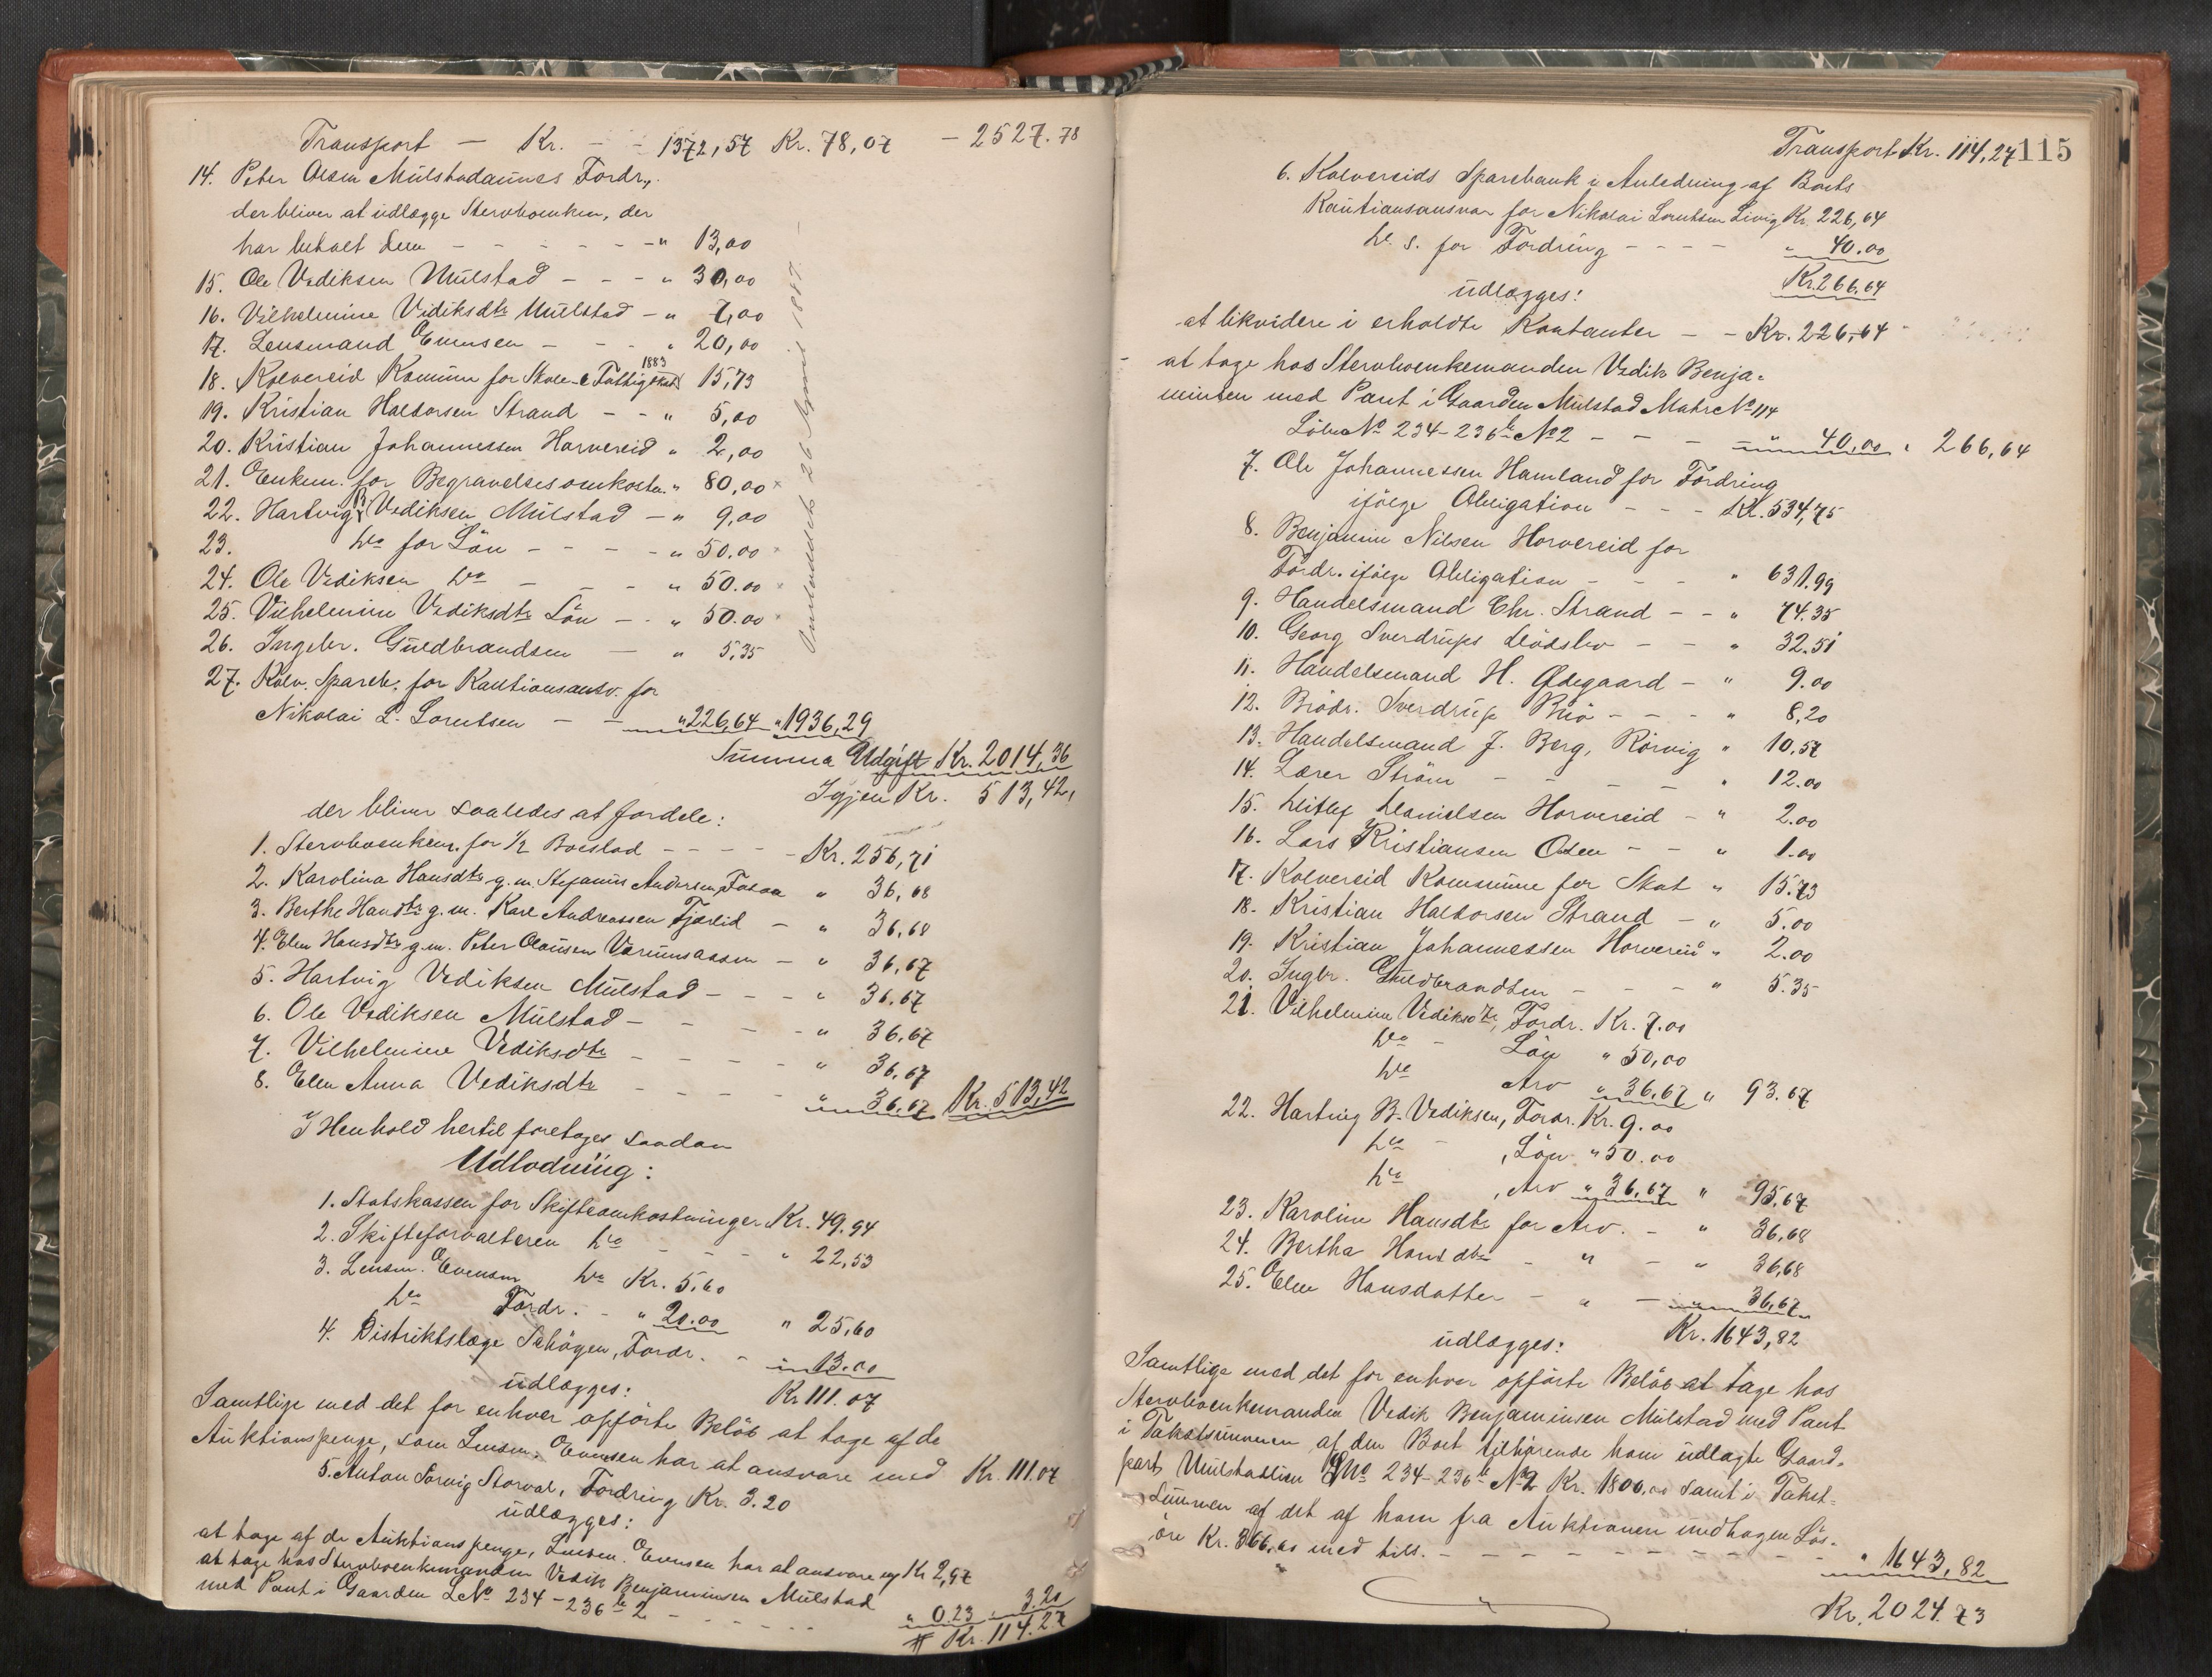 Transport — Kr. - - 1372,57 Kr. 78,07 - 2527.78
14. Peter Olsen Mülstadaunes Fordr.,
der bliver at udlægge Stervboenken, der
har betalt dem - - - - - - " 13,00
15. Ole Vediksen Mülstad - - - " 30,00
16. Vilhelmine Vediksdtr Mülstad - " 7,00
17. Lensmand Evensen - - - " 20,00
18. Kolvereid Komune for Skole- & Fattigskat 1883 15,73
19. Kristian Haldorsen Strand - - " 5,00
20. Kristian Johannessen Horvereid " 2,00
21. Enkem. for Begravelsesomkostn. " 80,00
22. Hartvig B. Vediksen Mülstad - " 9,00
23. do for Lön - - - - " 50.00
24. Ole Vediksen do - - - " 50.00
25. Vilhelmine Vediksdtr Lön - - " 50.00
26. Ingebr. Guldbrandsen - " 5,35
27. Kolv. Spareb. for Kautionsansv. for
Nikolai L. Lorntsen - - " 226,64 " 1936,29
Summa Udgift Kr. 2014,36
Igjen Kr. 513,42,
der bliver saaledes at fordele:
1. Stervboenkem. for 1/2 Boeslod - - - - Kr. 256,71
2. Karolina Hansdtr g.m. Stefanus Andersen Fosaa " 36,68
3. Berthe Hansdtr g.m. Karl Andreassen Fjærlid - " 36,68
4. Elen Hansdtr g.m. Peter Olausen - " 36,67
5. Hartvig Vediksen Mülstad - - - " 36.67
6. Ole Vediksen Mülstad - - - - " 36,67
7. Vilhelmine Vediksdtr - - - - " 36,67
8. Elen Anna Vediksdtr - - - - " 36,67 Kr. 513,42
I Henhold hertil foretages saadan
Udlodning:
1. Statskassen for Skifteomkostninger Kr. 49.94
2. Skifteforvalteren do - - - " 22,53
3. Lensm. Evensen do Kr. 5,60
do Fordr. - " 20.00 " 25,60
4. Distriktslæge Schögen, Fordr. - " 13.00
udlægges: Kr 111.07
Samtlige med det for enhver opförte Belöb at tage af de
Auktionspenge, som Lensm. Evensen har at ansvare med Kr. 111.07
5. Anton Sørvig Storval, Fordring Kr. 3.20
udlægges:
at tage af de Auktionspenge, Lensm. Evensen har at ansvare Kr 2,97
at tage hos Stervboenkemanden Vedik Benjaminsen Mülstad
med Pant i Gaarden L.No 234-236 b 2 - - - - " 0.23 " 3.20
Kr. 114.27
115
Transport Kr. 114,27
6. Kolvereids Sparebank i Anledning af Boets
Kautionsansvar for Nikolai Lorntsen Livig Kr. 226,64
d. s. for Fordring - - - - " 40.00
udlægges: Kr. 266.64
at likvidere i erholdte Kontanter - - Kr. 226,64
at tage hos Stervboenkemanden Vedik Benja-
minsen med Pant i Gaarden Mülstad Matr No 114
Löbe No 234-236 b No 2 - - - " 40,00 " 266,64
7. Ole Johannessen Hamland for Fordring
ifölge Obligation - - - Kr. 534,75
8. Benjamin Nilsen Horvereid for
Fordr. ifölge Obligation - - - " 631.99
9. Handelsmand Chr. Strand - - " 74.35
10. Georg Sverdrups Dödsbo - - " 32.51
11. Handelsmand H. Ødegaard - " 9.00
12. Brödr. Sverdrup - - - " 8,20
13. Handelsmand J. Berg, Rörvig " 10,57
14. Lærer Ström - - - " 12.00
15. Ditlef Danielsen Horvereid - " 2.00
16. Lars Kristiansen Osen - - " 1.00
17. Kolvereid Kommune for Skat " 15.73
18. Kristian Haldorsen Strand - " 5.00
19. Kristian Johannessen Horvereid " 2.00
20. Ingbr. Guldbrandsen - - - " 5.35
21. Vilhelmine Vediksdtr, Fordr. Kr. 7.00
do - Lön " 50,00
do Arv " 36,67 " 93.67
22. Hartvig B. Vediksen, Fordr. Kr. 9.00
do - , Lön " 50.00
do , Arv " 36,67 " 95,67
23. Karoline Hansdtr for Arv. - " 36,68
24. Bertha Hansdtr - " - " 36,68
25. Elen Hansdatter - " - " 36,67
udlægges: Kr. 1643,82
Samtlige med det for enhver opförte Belöb at tage hos
Stervboenkemanden Vedik Benjaminsen Mülstad med Pant
i Takstsummen af den Boet tilhörende ham udlagte Gaard-
part Mülstad L No 234-236 b No 2 Kr. 1800,00 samt i Takst-
summen af det af ham fra Auktionen undtagen Lös-
öre Kr. 366,60 med tils. - - - - - - - - - " 1643,82
Kr. 2024.73